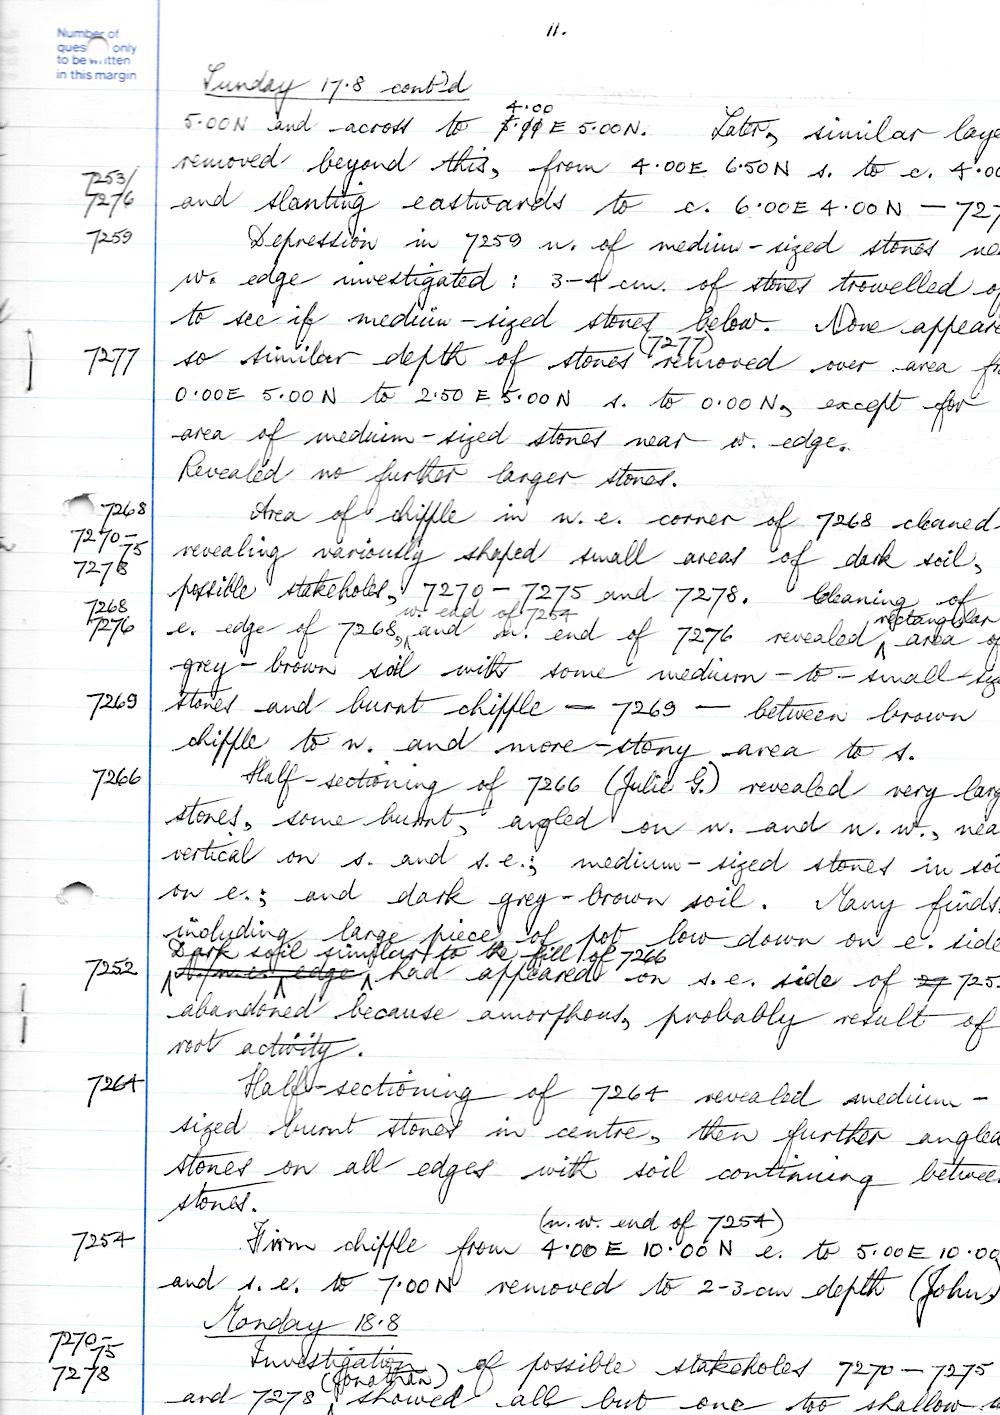 11.
Number of
ques only
to be written
in this margin
Sunday 17.8 cont'd
4.00
5.00N and across to E 5.00N. Later, similar laye
removed beyond this, from 4.00E 6.50N s. to c. 4.00
7253/
7276
and slanting eastwards to c. 6.00E 4.00N — 727
7259
Depression in 7259 n. of medium-sized stones nea
w. edge investigated : 3-4 cm. of stones trowelled of
to see if medium-sized stones below. None appeare
(7277)
7277
so similar depth of stones removed over area fr
0.00E 5.00N to 2.50E 5.00N s. to 0.00N, except for
area of medium-sized stones near w. edge.
Revealed no further larger stones.
7268
Area of chipple in n.e. corner of 7268 cleaned
7270-
75
revealing variously shaped small areas of dark soil,
7278
possible stakeholes, 7270 – 7275 and 7278. Cleaning of
7268
w. end of 7254
rectangular
7276
e. edge of 7268, and n. end of 7276 revealed area of
grey-brown soil with some medium-to-small-siz
7269
stones and burnt chipple — 7269 — between brown
chipple to n. and more-stony area to s.
7266
Half-sectioning of 7266 (Julie G.) revealed very larg
stones, some burnt, angled on n. and n.w., nea
vertical on s. and s.e.; medium-sized stones in soi
on e.; and dark grey-brown soil. Many finds,
including large piece of pot low down on e. side
Dark soil similar to the fill of 7266
7252
had appeared on s.e. side of 27 725
abandoned because amorphous, probably result of
root activity.
7264
Half-sectioning of 7264 revealed medium-
sized burnt stones in centre, then further angled
stones on all edges with soil continuing betwee
stones.
(n.w. end of 7254)
7254
Firm chipple from 4.00E 10.00N e. to 5.00E 10.00
and s.e. to 7.00N removed to 2-3cm depth (John)
Monday 18.8
7270-
75
7278
Investigation of possible stakeholes 7270 – 7275
(Jonathan)
and 7278 showed all but one too shallow